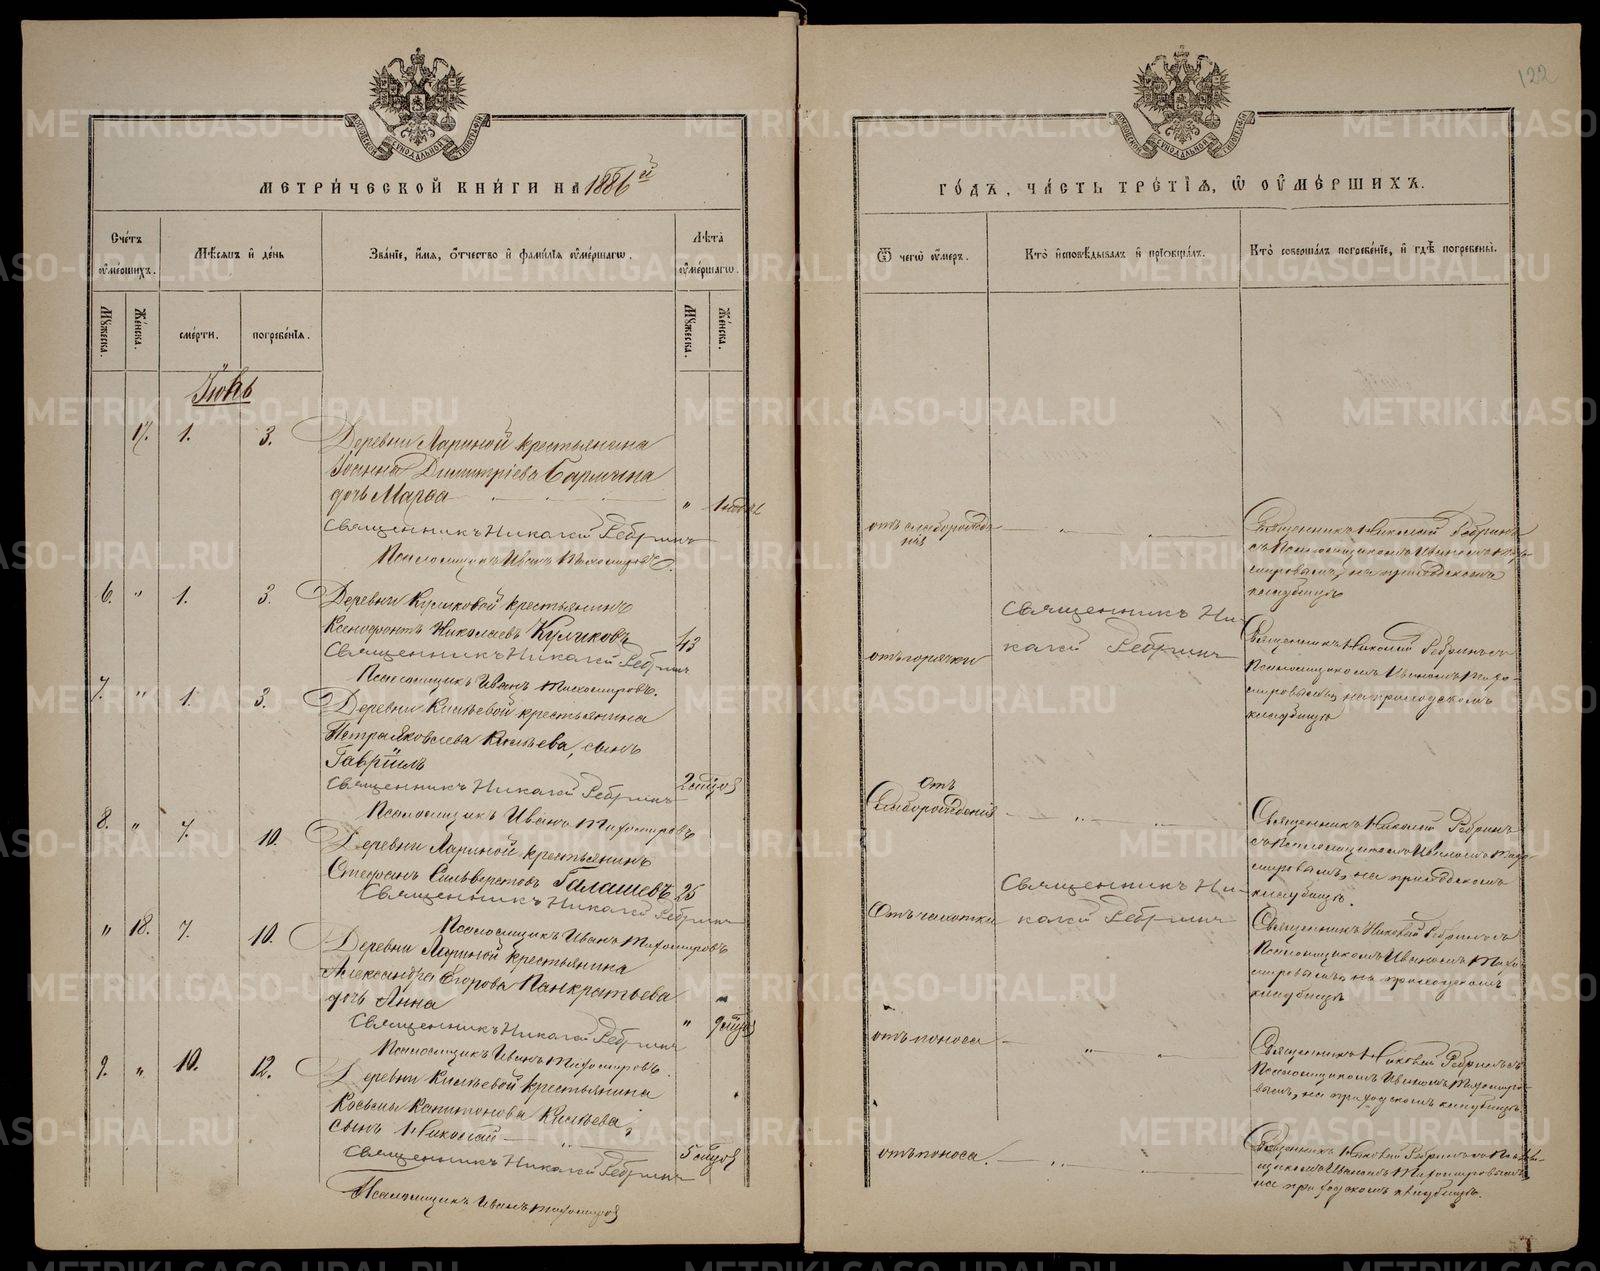 122
МЕТРИ́ЧЕСКОЙ КНИ́ГИ НА 1886й
ГО́ДЪ, ЧА́СТЬ ТРЕ́ТІѦ, Ѡ ОУМЕ́РШИХЪ.
Сче́тъ оуме́ршихъ.
Мѣ́сѧцъ и҆ де́нь
Зва́нїе, и҆́мѧ, ѻ҆́тчество и҆ фами́лїѧ оуме́ршагѡ.
Лѣта̀ оуме́ршагѡ.
Ѿ чегѡ̀ оу́меръ.
Кто̀ и҆сповѣ́дывалъ и҆ прїѡбща́лъ.
Кто̀ соверша́лъ погребе́нїе, и҆ гдѣ̀ погребены̀.
Мꙋжеска.
Же́нска.
сме́рти.
погребе́нїѧ.
Мꙋжеска.
Же́нска.
Іюнь
17. 1. 3. Деревни Лариной крестьянина
Іоанна Димитріева Бармина
дочь Марѳа
Священникъ Николай Ребринъ
Псаломщикъ Иванъ Тихомировъ.
отъ слаборожде
нія
Священникъ Николай Ребринъ
съ Псаломщикомъ Иваномъ Тихо-
мировымъ, на приходскомъ
кладбищѣ
6. " 1. 3. Деревни Куликовой крестьянинъ
Ксенофонтъ Николаевъ Куликовъ 43
Священникъ Николай Ребринъ
Псаломщикъ Иванъ Тихомировъ.
отъ горячки
Священникъ Ни-
колай Ребринъ
Священникъ Николай Ребринъ съ
Псаломщикомъ Иваномъ Тихо-
мировымъ, на приходскомъ
кладбищѣ
7. " 1. 3. Деревни Киплевой крестьянина
Петра Яковлева сынъ
Гавріилъ
Священникъ Николай Ребринъ
Псаломщикъ Иванъ Тихомировъ
отъ
Слаборожденія
Священникъ Николай Ребринъ
съ Псаломщикомъ Иваномъ Тихо-
мировымъ, на приходскомъ
кладбищѣ.
8. " 7. 10. Деревни Лариной крестьянинъ
Стефанъ Сильверстовъ Галашевъ 25
Священникъ Николай Ребринъ
Псаломщикъ Иванъ Тихомировъ
Отъ чахотки
Священникъ Ни-
колай Ребринъ
Священникъ Николай Ребринъ съ
Псаломщикомъ Иваномъ Тихо-
мировымъ, на приходскомъ
кладбищѣ
" 18. 7. 10. Деревни Лариной крестьянина
Александра Егорова Панкратьева
дочь Анна
Священникъ Николай Ребринъ
Псаломщикъ Иванъ Тихомировъ.
отъ поноса
Священникъ Николай Ребринъ съ
Псаломщикомъ Иваномъ Тихомиро-
вымъ, на приходскомъ кладбищѣ.
9. " 10. 12. Деревни крестьянина
Космы Капитонова
сынъ Николай
Священникъ Николай Ребринъ
Псаломщикъ Иванъ Тихомировъ
отъ поноса.
Священникъ Николай Ребринъ съ Псалом-
щикомъ Иваномъ Тихомировымъ,
на приходскомъ кладбищѣ.
METRIKI.GASO-URAL.RU